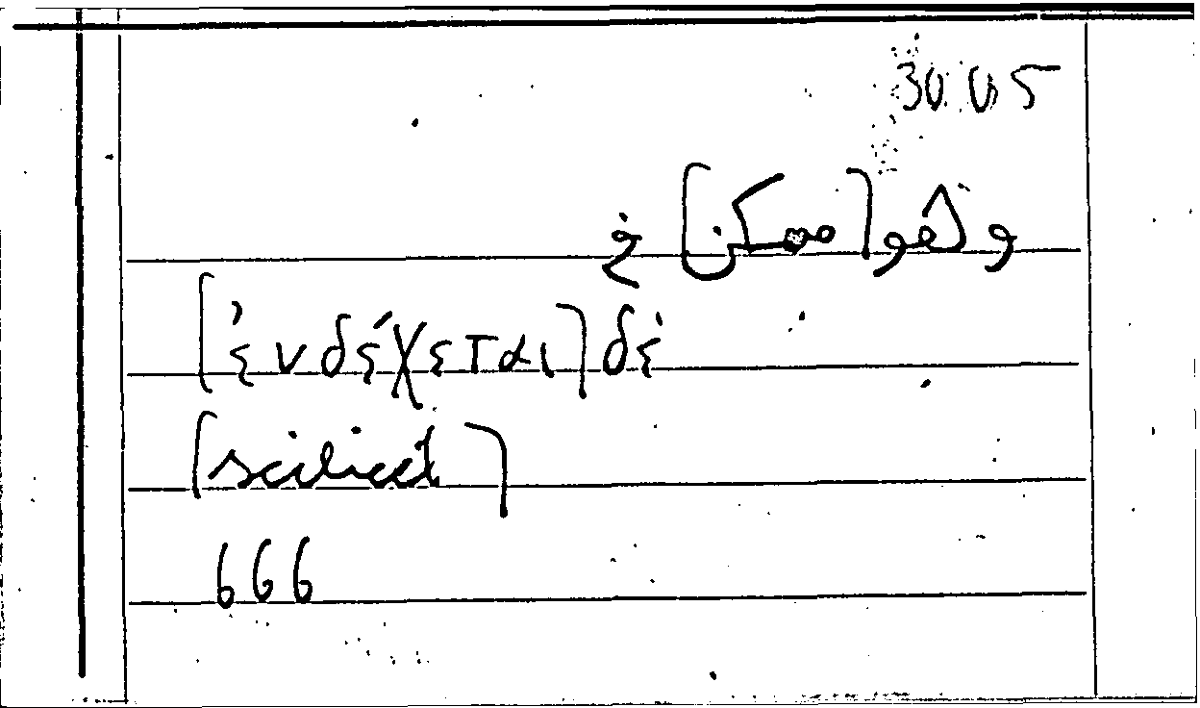 وهو [ممكن] خ
[ἐνδέχεται] δὲ
[scilicet]
666